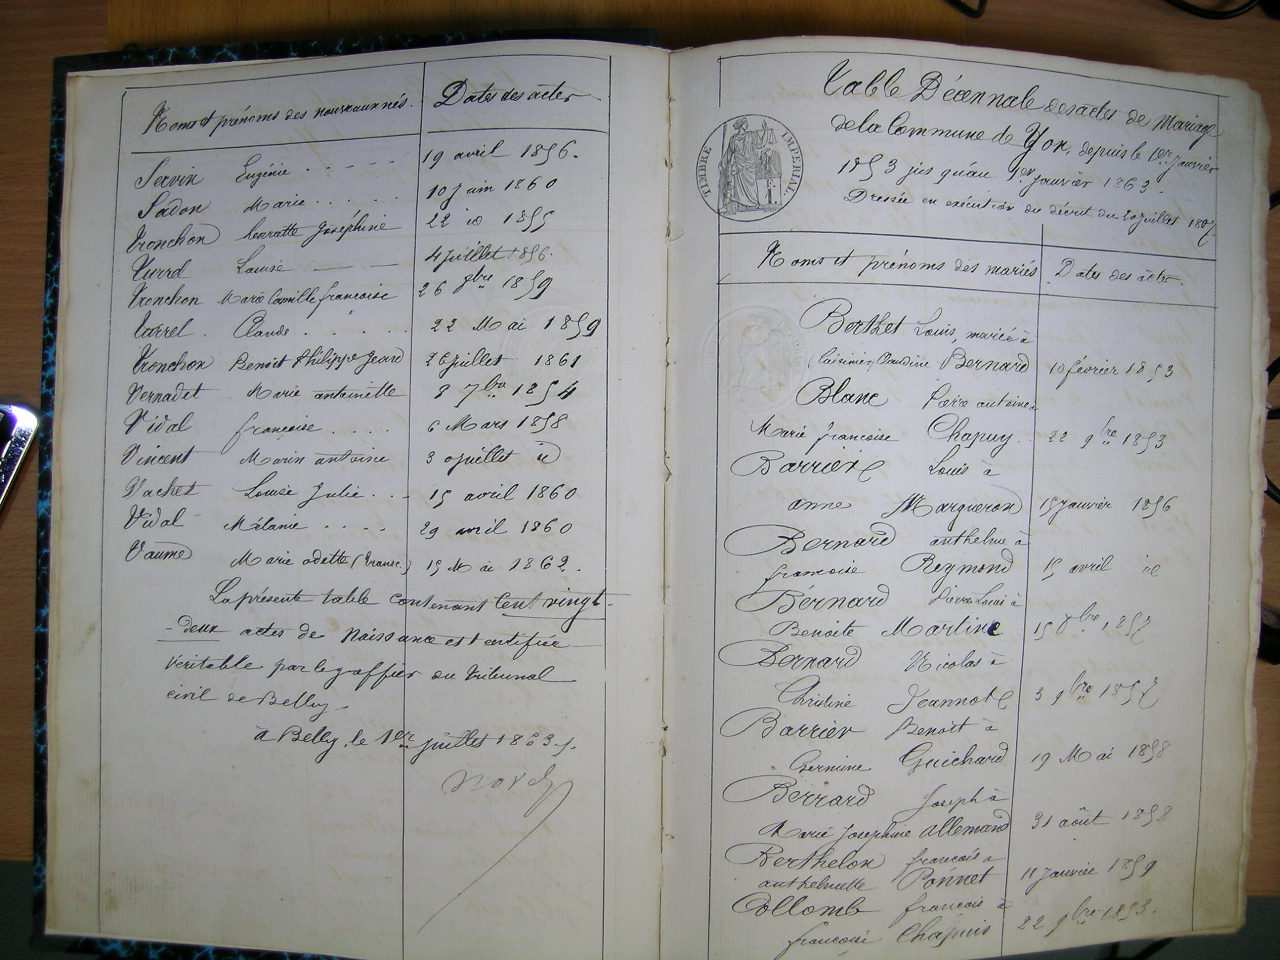 Noms et prénoms des nouveaux nés. Dates des actes
Servin Eugénie 19 avril 1856.
Sadon Marie 10 Juin 1860
Tronchon Josephine 22 id 1855
Louise 4 juillet 1856.
Tronchon Marie Camille françoise 26 9bre 1859
Claude 22 Mai 1859
Tronchon Benoit Philippe 26 juillet 1861
Vernadet Marie antoinette 8 7bre 1854
Vidal françoise 6 Mars 1858
Vincent Marin antoine 30 juillet id
Vachet Louise Julie 15 avril 1860
Vidal Mélanie 29 avril 1860
Vaume Marie odette 15 Mai 1862.
La présente table contenant Cent vingt-
-deux actes de Naissance est certifiée
véritable par le greffier du Tribunal
civil de Belley.
à Belley, le 1er juillet 1863.
TIMBRE IMPERIAL
Table Décennale des actes de Mariage
de la Commune de Yon, depuis le 1er Janvier
1853 jusqu'au 1er Janvier 1863.
Dressée en exécution du décret du 20 juillet 1807
Noms et prénoms des mariés Dates des actes
Berthet Louis, marié à
Claudine Bernard 10 février 1853
Blanc Pierre antoine à
Marie françoise Chapuy 22 9bre 1853
Barrier Louis à
anne Margueron 15 Janvier 1856
Bernard anthelme à
françoise Reymond 15 avril id
Bernard Pierre Louis à
Benoite Martine 15 8bre 1857
Bernard Nicolas à
Christine Jeannot 3 9bre 1857
Barrier Benoit à
Germine Guichard 19 Mai 1858
Berrard Joseph à
Marie Josephine allemand 31 août 1858
Berthelon françois à
anthelmette Ponnet 11 Janvier 1859
Collomb françois à
françoise Chapuis 22 9bre 1853.